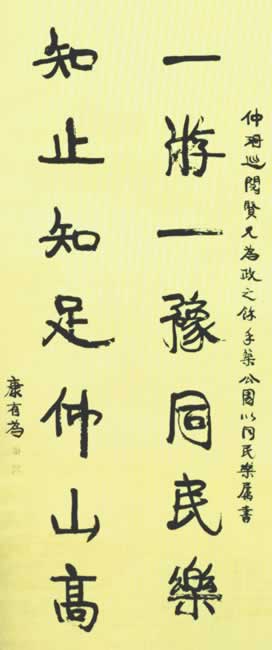 仲珊巡閱賢兄為政之餘手築公園以同民樂屬書
一游一豫同民樂
知止知足仲山高
康有為